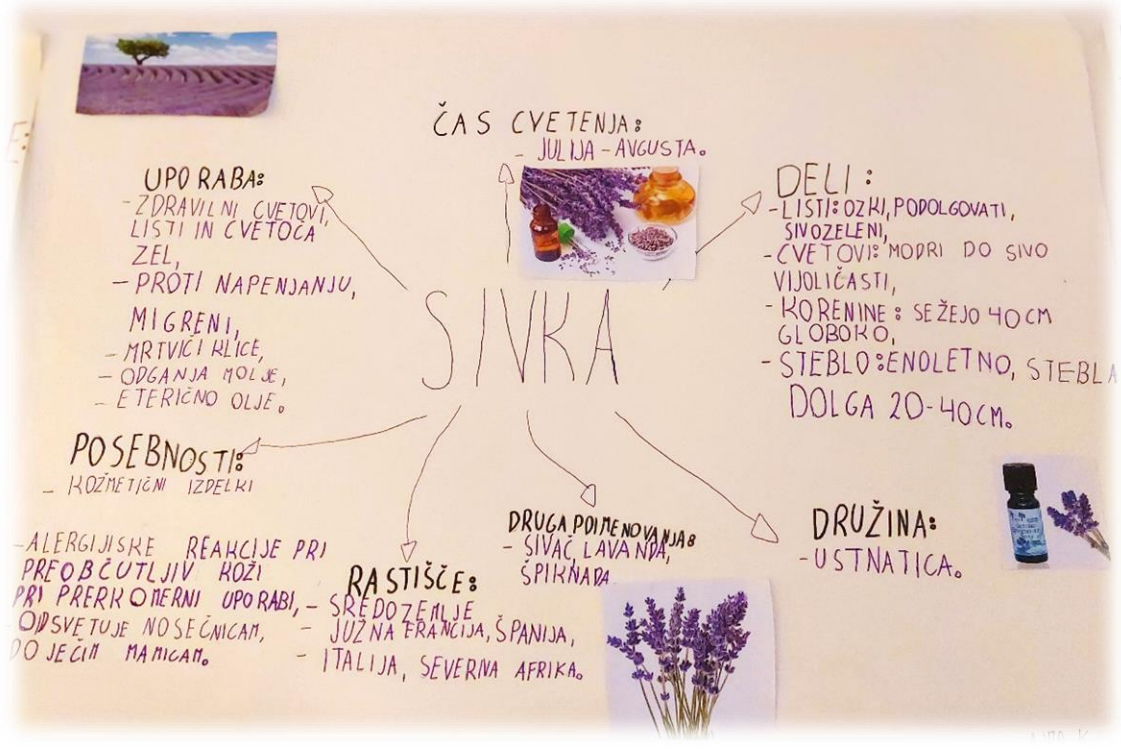 ČAS CVETENJA:
- JULIJA - AVGUSTA.
UPORABA:
- ZDRAVILNI CVETOVI,
LISTI IN CVETOČA
ZEL,
- PROTI NAPENJANJU,
MIGRENI,
- MRTVIČI KLICE,
- ODGANJA MOLJE,
- ETERIČNO OLJE.
DELI:
- LISTI: OZKI, PODOLGOVATI,
SIVOZELENI,
- CVETOVI: MODRI DO SIVO
VIJOLIČASTI,
- KORENINE: SEŽEJO 40 CM
GLOBOKO,
- STEBLO: ENOLETNO, STEBLA
DOLGA 20-40CM.
SIVKA
POSEBNOSTI:
- KOZMETIČNI IZDELKI
- ALERGIJSKE REAKCIJE PRI
PREOBČUTLJIV KOŽI
PRI PRERKOMERNI UPORABI,
ODSVETUJE NOSEČNICAM,
DOJEČIM MAMICAM.
RASTIŠČE:
- SREDOZEMLJE
- JUŽNA FRANCIJA, ŠPANIJA,
- ITALIJA, SEVERNA AFRIKA.
DRUGA POIMENOVANJA:
- SIVAČ, LAVANDA,
ŠPIKNADA
DRUŽINA:
- USTNATICA.